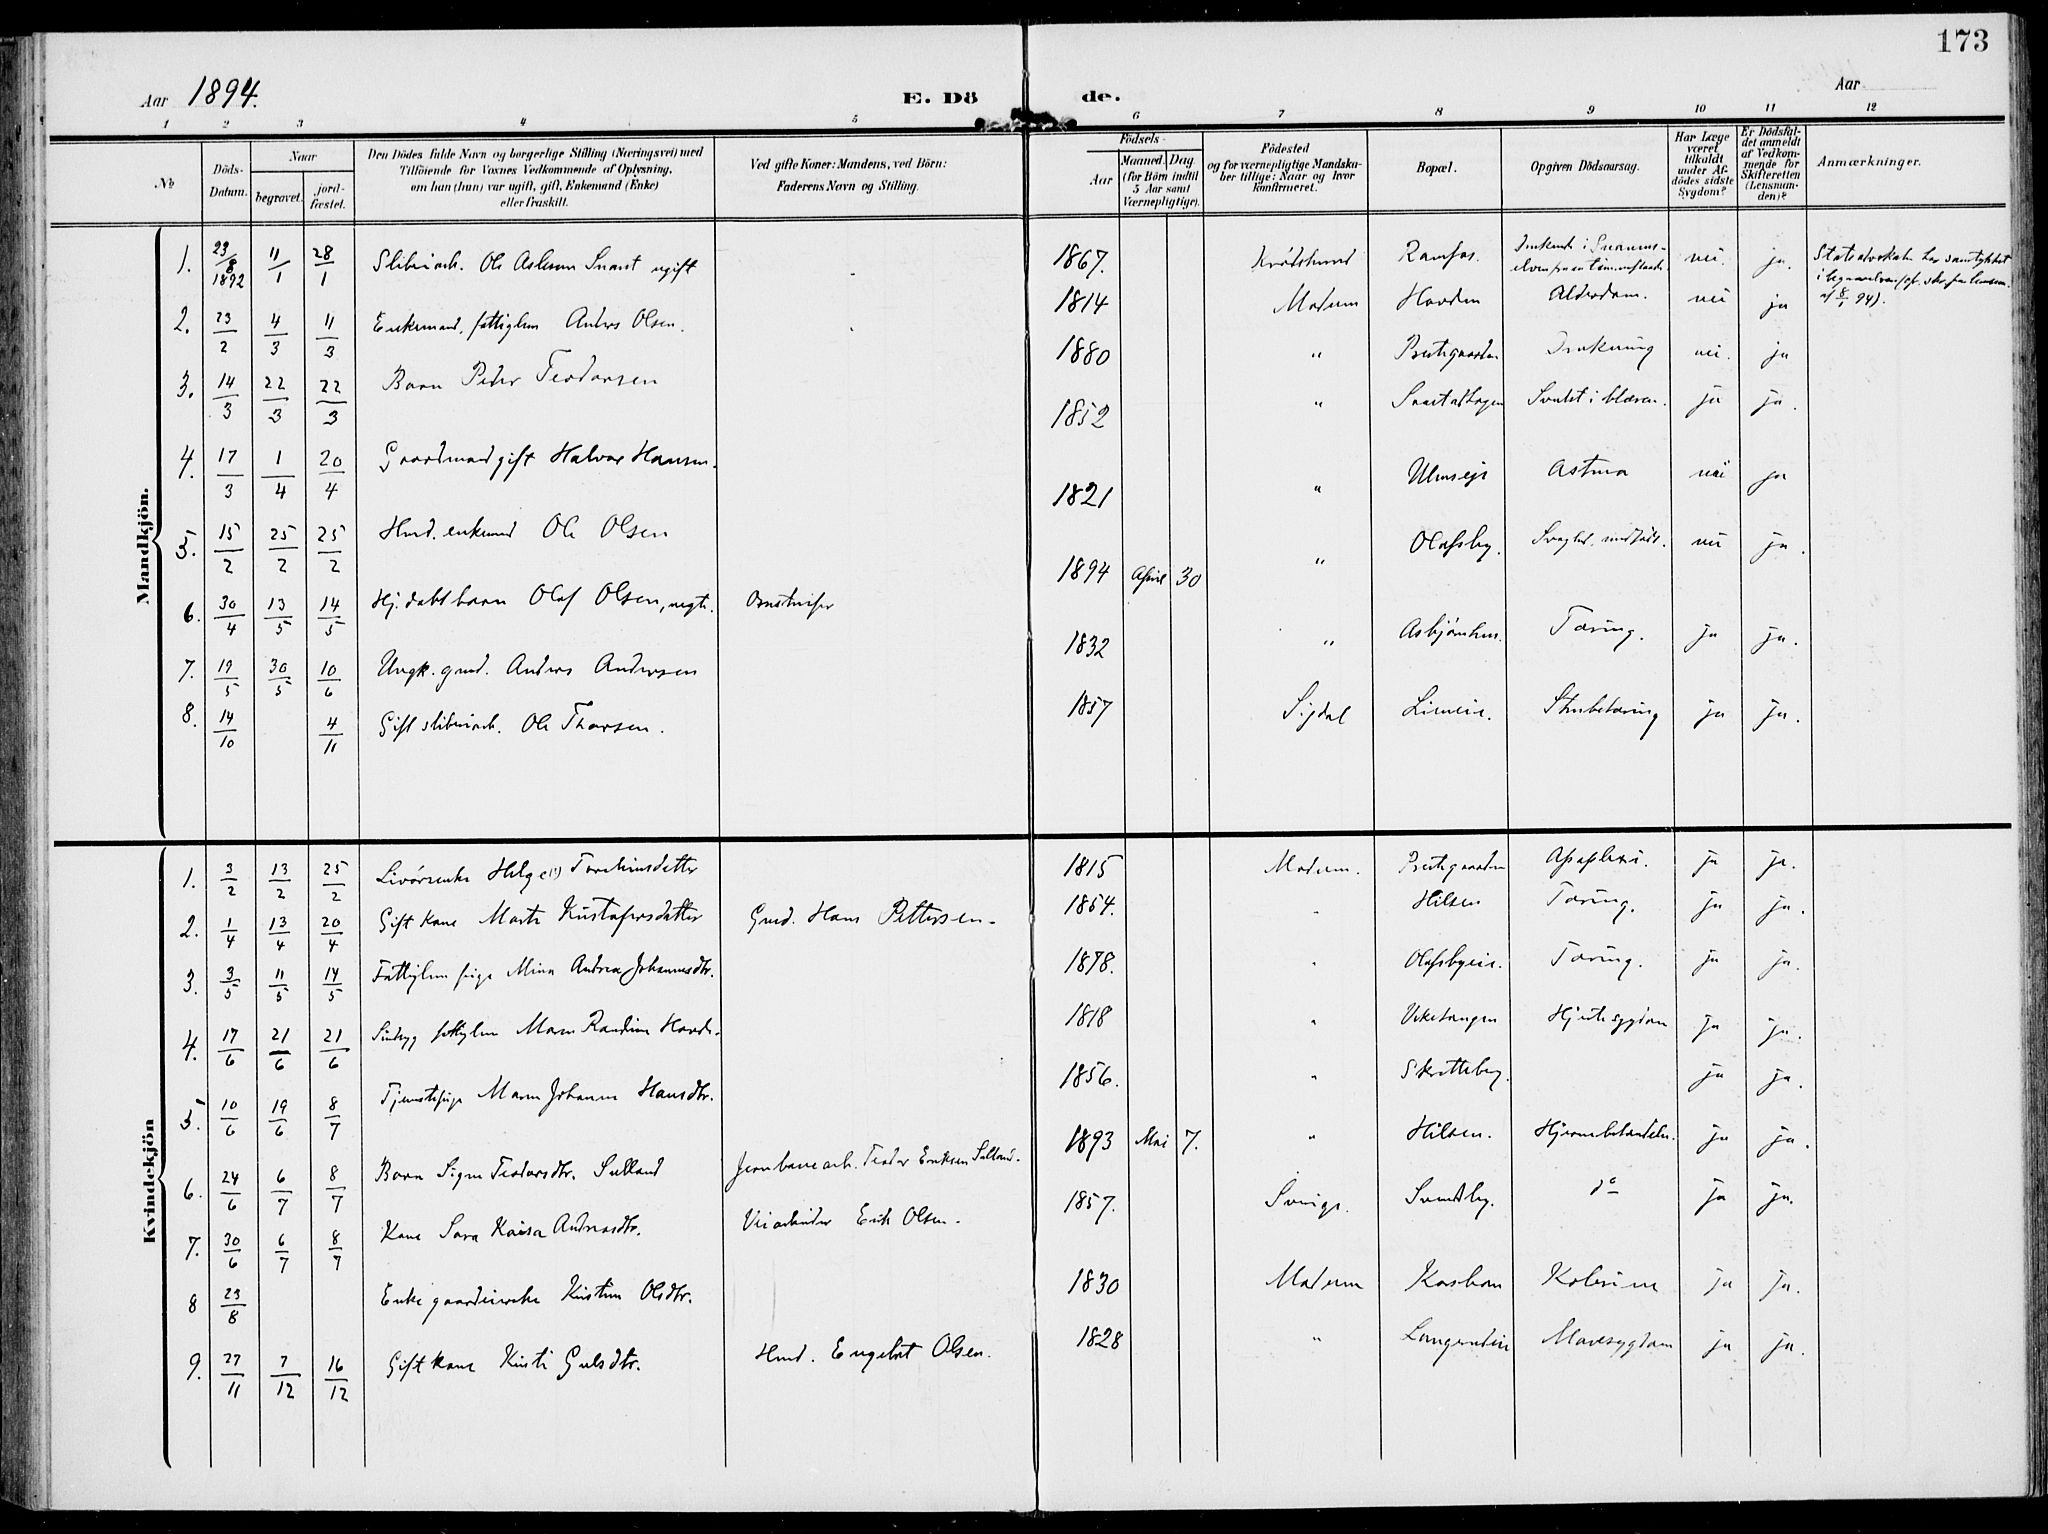 173
Aar 1894.
E. Dö de.
Aar
1 2 3 4 5 6 7 8 9 10 11 12
No
Döds-Datum.
Naar
begravet.
jord-fæstet.
Den Dödes fulde Navn og borgerlige Stilling (Næringsvei) med
Tilföiende for Voxnes Vedkommende af Oplysning,
om han (hun) var ugift, gift, Enkemand (Enke)
eller fraskilt.
Ved gifte Koner: Mandens, ved Börn:
Faderens Navn og Stilling.
Födsels-
Aar
Maaned. Dag
(for Börn indtil
5 Aar samt
Værnepligtige).
Födested
og for værnepligtige Mandska-
ber tillige: Naar og hvor
konfirmeret.
Bopæl.
Opgiven Dödsaarsag.
Har Læge
været
tilkaldt
under Af-
dödes sidste
Sygdom?
Er Dödsfal-
det anmeldt
af Vedkom-
mende for
Skifteretten
(Lensman-
den)?
Anmærkninger.
Mandkjön.
1. 23/8 1892 11/1 28/1 Sliberiarb. Ole Aslesen Snart ugift 1867. Krødsherred Ramfos. nei. ja.
2. 23/2 4/3 11/3 Enkemand, fattiglem Anders Olsen. 1814 Modum Hovden Alderdom. nei ja
3. 14/3 22/3 22/3 Barn Peder Teodorsen 1880 " Prestgaarden Drukning nei. ja
4. 17/3 1/4 20/4 Gaardmand gift Halvor Hansen. 1852 " i blæren. ja ja.
5. 15/2 25/2 25/2 Hmd. enkemd Ole Olsen 1821 " Astma nei ja
6. 30/4 13/5 14/5 Hj. døbt barn Olaf Olsen, uegte. 1894 April 30 " Olafsby. nei ja.
7. 19/5 30/5 10/6 Ungk. gmd. Anders Andersen 1832 " Asbjørnhus. Tæring. ja ja.
8. 14/10 4/11 Gift sliberiarb. Ole Thorsen. 1857 Sigdal Strubetæring ja ja.
Kvindekjön
1. 3/2 13/2 25/2 Livørenke Helge(?) Torstensdatter 1815 Modum. Prestgaarden Apoplexi. ja ja.
2. 1/4 13/4 20/4 Gift kone Marte Kristofersdatter Gmd. Hans Pettersen. 1854. " Hilsen Tæring. ja ja.
3. 3/5 11/5 14/5 Fattiglem pige Mina Andrea Johannesdtr. 1878. " Olafsbyeie. Tæring. ja ja.
4. 17/6 21/6 21/6 Sindsyg fattiglem Maren Randine Hovde. 1818 " Viketangen Hjertesygdom ja ja.
5. 10/6 19/6 8/7 Tjenestepige Maren Johanne Hansdtr. 1856. " ja ja.
6. 24/6 6/7 8/7 Barn Signe Teodorsdtr. Sulland Jernbanearb. Teodor Eriksen Sulland. 1893 Mai 7. " Hilsen. Hjernebetændelse. ja ja.
7. 30/6 6/7 8/7 Kone Sara Kaisa Andreasdtr. Veiarbeider Erik Olsen. 1857. Sverige. Svendsby. do ja ja.
8 23/8 Enke gaardeierske Kristine Olsdtr. 1830 Modum Kolerine ja ja.
9. 27/11 7/12 16/12 Gift kone Kirsti Gulsdtr. Hmd. Engebret Olsen. 1828 " Mavesygdom ja ja.